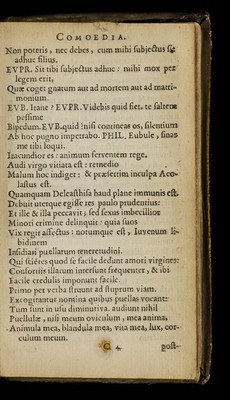 COMOEDIA.
Non poteris, nec debes, cum mihi subjectus sit
adhuc filius.
EVPR. Sit tibi subjectus adhuc: mihi mox per
legem erit,
Quæ coget gnatum aut ad mortem aut ad matri-
monium.
EVB. Itane? EVPR. Videbis quid fiet. te saltem
pessime
Bipedum. EVB. quid? nisi contineas os, silentium
Ab hoc pugno impetrabo. PHIL. Eubule, sinas
me tibi loqui.
Iracundior es: animum ferventem rege.
Audi virgo vitiata est: remedio
Malum hoc indiget: & præsertim inculpa Aco-
lastus est.
Quamquam Deleasthisa haud plane immunis est.
Debuit uterque egisse res paulo prudentius:
Et ille & illa peccavit, sed sexus imbecillior
Minori crimine delinquit: quia suos
Vix regit affectus: notumque est, Iuvenum li-
bidinem
Insidiari puellarum teneritudini.
Qui scientes quod se facile dedunt amori virgines:
Consortiis illarum intersunt frequenter, & ibi
Facile credulis imponunt facile.
Primo per verba struunt ad stuprum viam.
Excogitantur nomina quibus puellas vocant:
Tum sunt in usu diminutiva. audiunt nihil
Puellulæ, nisi meum oviculum, mea anima,
Animula mea, blandula mea, vita mea, lux, cor-
culum meum.
C 4 post-